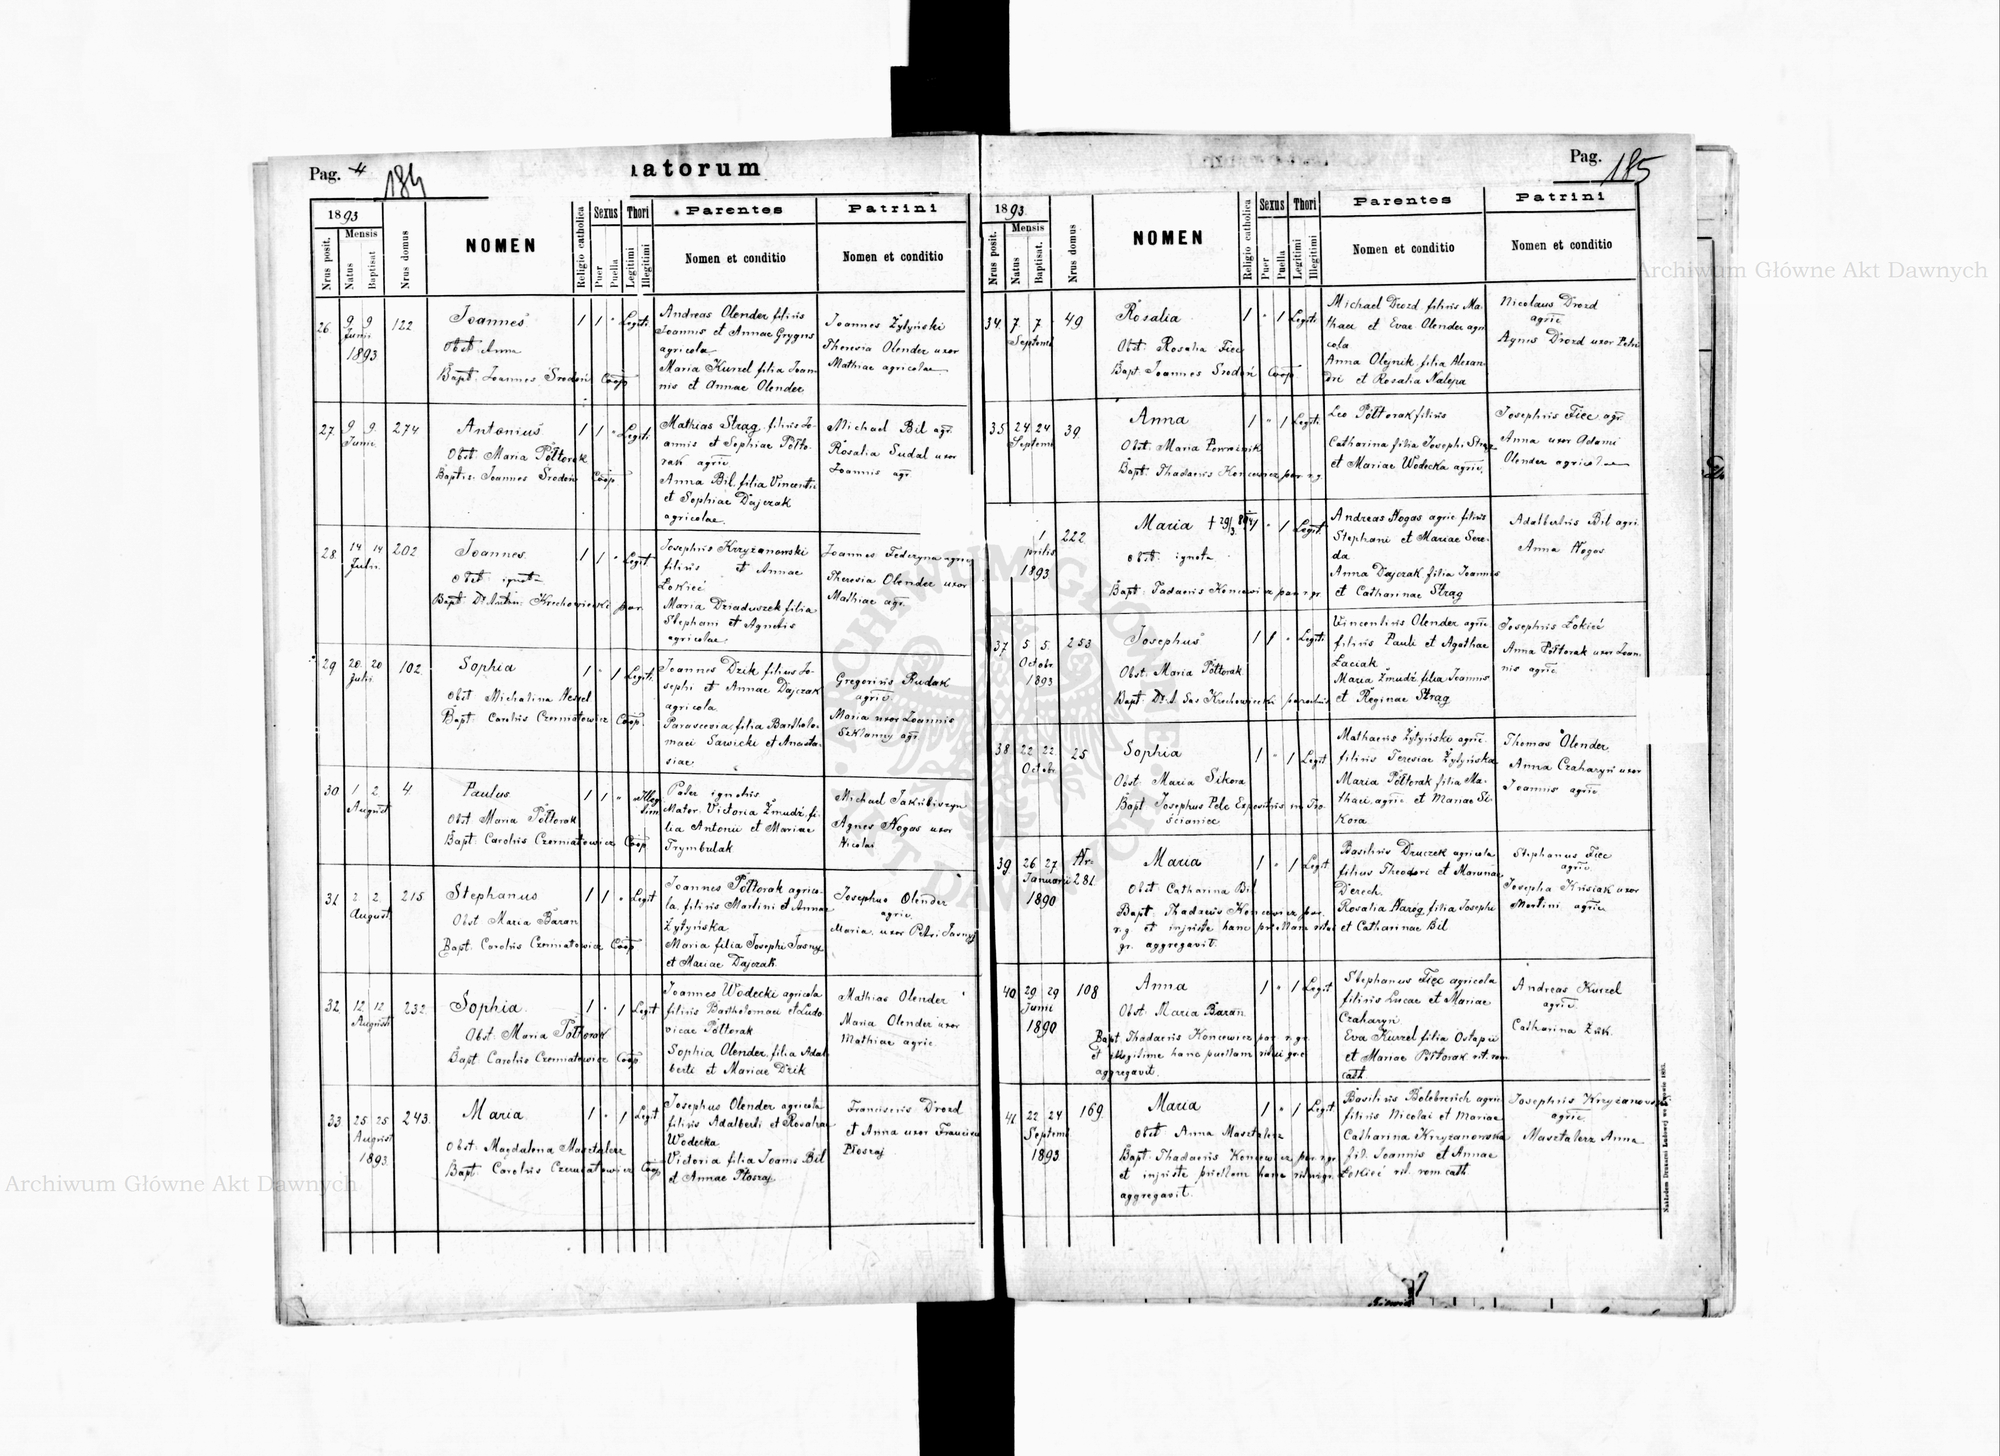 Pag. 4
184
Natorum
1893
Mensis
Nrus posit.
Natus
Baptisat.
Nrus domus
NOMEN
Religio catholica
Sexus
Puer
Puella
Thori
Legitimi
Illegitimi
Parentes
Nomen et conditio
Patrini
Nomen et conditio
26 9 9 122 Joannes 1 1 " Legiti
Junii
1893
Obst. Anna
Bapt. Joannes Srodoń Coop
Andreas Olender filius
Joannis et Annae Grygus
agricola
Maria Kurzel filia Joan-
nis et Annae Olender
Joannes Żytyński
Theresia Olender uxor
Mathiae agricolae
27. 9 9. 274 Antonius 1 1 " Legiti.
Junii
Obst. Maria Półtorak
Baptis. Joannes Srodoń Coop
Mathias Strag. filius Jo-
annis et Sophiae Półto-
rak agric
Anna Bil. filia Vincentii
et Sophiae Dajczak
agricolae.
Michael Bil agr.
Rosalia Sudal uxor
Joannis agr.
28. 14 14 202 Joannes. 1 1 " Legit
Julii.
Obst. ignota
Bapt. Dr Anton. Krechowiecki par.
Josephus Krzyżanowski
filius et Annae
Łokieć
Maria Dziaduszek filia
Stephani et Agnetis
agricolae.
Joannes Federyna agric
Theresia Olender uxor
Mathiae agr.
29 20. 20 102. Sophia 1 " 1 Legiti.
Julii
Obst Michalina Weskel
Bapt. Carolus Czernatowicz Coop.
Joannes Dzik filius Jo-
sephi et Annae Dajczak
agricola.
Parascevia filia Bartholo-
maei Sawicki et Anasta-
siae
Gregorius Rudak
agric
Maria uxor Joannis
Szklanny agr
30 1 2 4 Paulus 1 1 " Illegi
tim
August
Obst. Maria Półtorak
Bapt. Carolus Czerniatowicz Coop
Pater ignotus
Mater. Victoria Żmudź fi-
lia Antonii et Mariae
Trymbulak
Michael Jakubiszyn
Agnes Nogas uxor
Nicolai
31 2 2. 215 Stephanus 1 1 " Legit
August.
Obst Maria Baran
Bapt. Carolus Czerniatowicz Coop
Joannes Półtorak agrico-
la. filius Martini et Annae
Żytyńska
Maria filia Josephi Jasnyj
et Mariae Dajczak.
Josephus Olender
agric.
Maria. uxor Petri Jasnyj
32 12 12 232. Sophia. 1 " 1 Legit
August
Obst. Maria Półtorak
Bapt Carolus Czerniatowicz Coop
Joannes Wodecki agricola
filius Bartholomaei et Ludo-
vicae Półtorak
Sophia Olender filia Adal
berti et Mariae Dzik
Mathias Olender
Maria Olender uxor
Mathiae agric.
33 25 25 243. Maria 1 " 1 Legit
August
1893.
Obst. Magdalena Masztalerz
Bapt. Carolus Czerniatowicz Coop
Josephus Olender agricola
filius Adalberti et Rosalia
Wodecka
Victoria filia Joannis Bil
et Annae Płosraj
Franciscus Drozd
et Anna uxor Francisci
Płosraj
Pag.
185
1893.
Mensis
Nrus posit.
Natus
Baptisat.
Nrus domus
NOMEN
Religio catholica
Sexus
Puer
Puella
Thori
Legitimi
Illegitimi
Parentes
Nomen et conditio
Patrini
Nomen et conditio
34. 7 7 49 Rosalia 1 " 1 Legiti.
Septemb
Obst. Rosalia Fiec
Bapt. Joannes Srodoń Coop
Michael Drozd filius Ma-
thaei et Evae Olender agri
cola
Anna Olejnik filia Alexan-
dri et Rosalia Nalepa
Nicolaus Drozd
agric
Agnes Drozd uxor Petri
35 24 24 39. Anna 1 " 1 Legiti.
Septemb
Obst. Maria Powroźnik
Bapt. Thadaeus Koncewicz par. r.g.
Leo Półtorak filius
Catharina filia Josephi Strag
et Mariae Wodecka agric.
Josephus Fiec agr.
Anna uxor Adami
Olender agricolae
1 222. Maria † 29/3 1 " 1 Legit
prilis
1893.
Obst. ignota
Bapt. Tadaeus Koncewicz par r.gr
Andreas Nogas agric filius
Stephani et Mariae Sere-
da
Anna Dajczak filia Joannis
et Catharinae Strag
Adalbertus Bil agri
Anna Nogas
37 5 5. 253. Josephus 1 1 " Legiti.
Octobr
1893
Obst. Maria Półtorak
Bapt. Dr. A Sas Krechowiecki parochus
Vincentius Olender agric
filius Pauli et Agathae
Łaciak
Maria Żmudź filia Joannis
et Reginae Strag
Josephus Łokieć
Anna Półtorak uxor Joan-
nis agric
38 22 22. 25 Sophia 1 " 1 Legit
Octobr.
Obst Maria Sikora
Bapt Josephus Pelc Expositus in Tro
ścianiec
Mathaeus Żytyński agric.
filius Teresiae Żytyńska
Maria Półtorak filia Ma-
thaei, agric et Mariae Si-
kora
Thomas Olender
Anna Czaharyn uxor
Joannis agric.
39 26 27 Nr- Maria 1 " 1 Legit
Januarii 281.
1890
Obst Catharina Bil
Bapt. Thadaeus Koncewicz par.
r.g. et injuste hanc puellam ritui
gr. aggregavit.
Basilius Druczek agricola
filius Theodori et Mariae
Derech.
Rosalia Naróg filia Josephi
et Catharinae Bil
Stephanus Fiec
agric.
Josepha Kusiak uxor
Martini agric
40 29 29 108 Anna 1 " 1 Legit
Junii
1890
Obst. Maria Baran
Bapt. Thadaeus Koncewicz par r.gr
et illegitime hanc puellam ritui gr.c
aggregavit.
Stephanus Fiec agricola
filius Lucae et Mariae
Czaharyn.
Eva Kurzel filia Ostapii
et Mariae Półtorak rit. rom
cath
Andreas Kurzel
agric.
Catharina Żuk.
41 22 24 169. Maria 1 " 1 Legit
Septemb
1893.
Obst Anna Masztalerz
Bapt. Thadaeus Koncewicz par. r.gr
et injuste puellam hanc ritui gr.
aggregavit.
Basilius Bolobrerich agric
filius Nicolai et Mariae
Catharina Krzyżanowska
fil. Joannis et Annae
Łokieć rit. rom cath
Josephus Krzyżanowski
agric.
Masztalerz Anna
Nakładem Drukarni Ludowej we Lwowie 1893.
Archiwum Główne Akt Dawnych
Archiwum Główne Akt Dawnych
ARCHIWUM GŁÓWNE AKT DAWNYCH